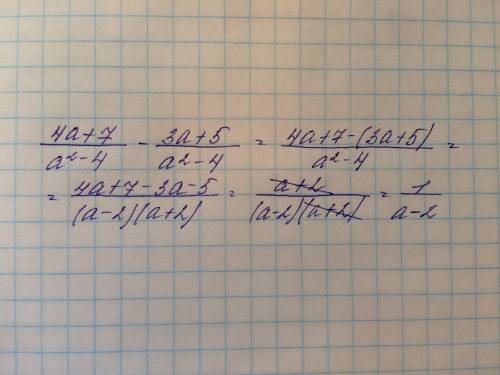 (4a+7)/(a²-4) - (3a+5)/(a²-4) = (4a+7-(3a+5))/(a²-4) =
= (4a+7-3a-5)/((a-2)(a+2)) = (a+2)/((a-2)(a+2)) = 1/(a-2)